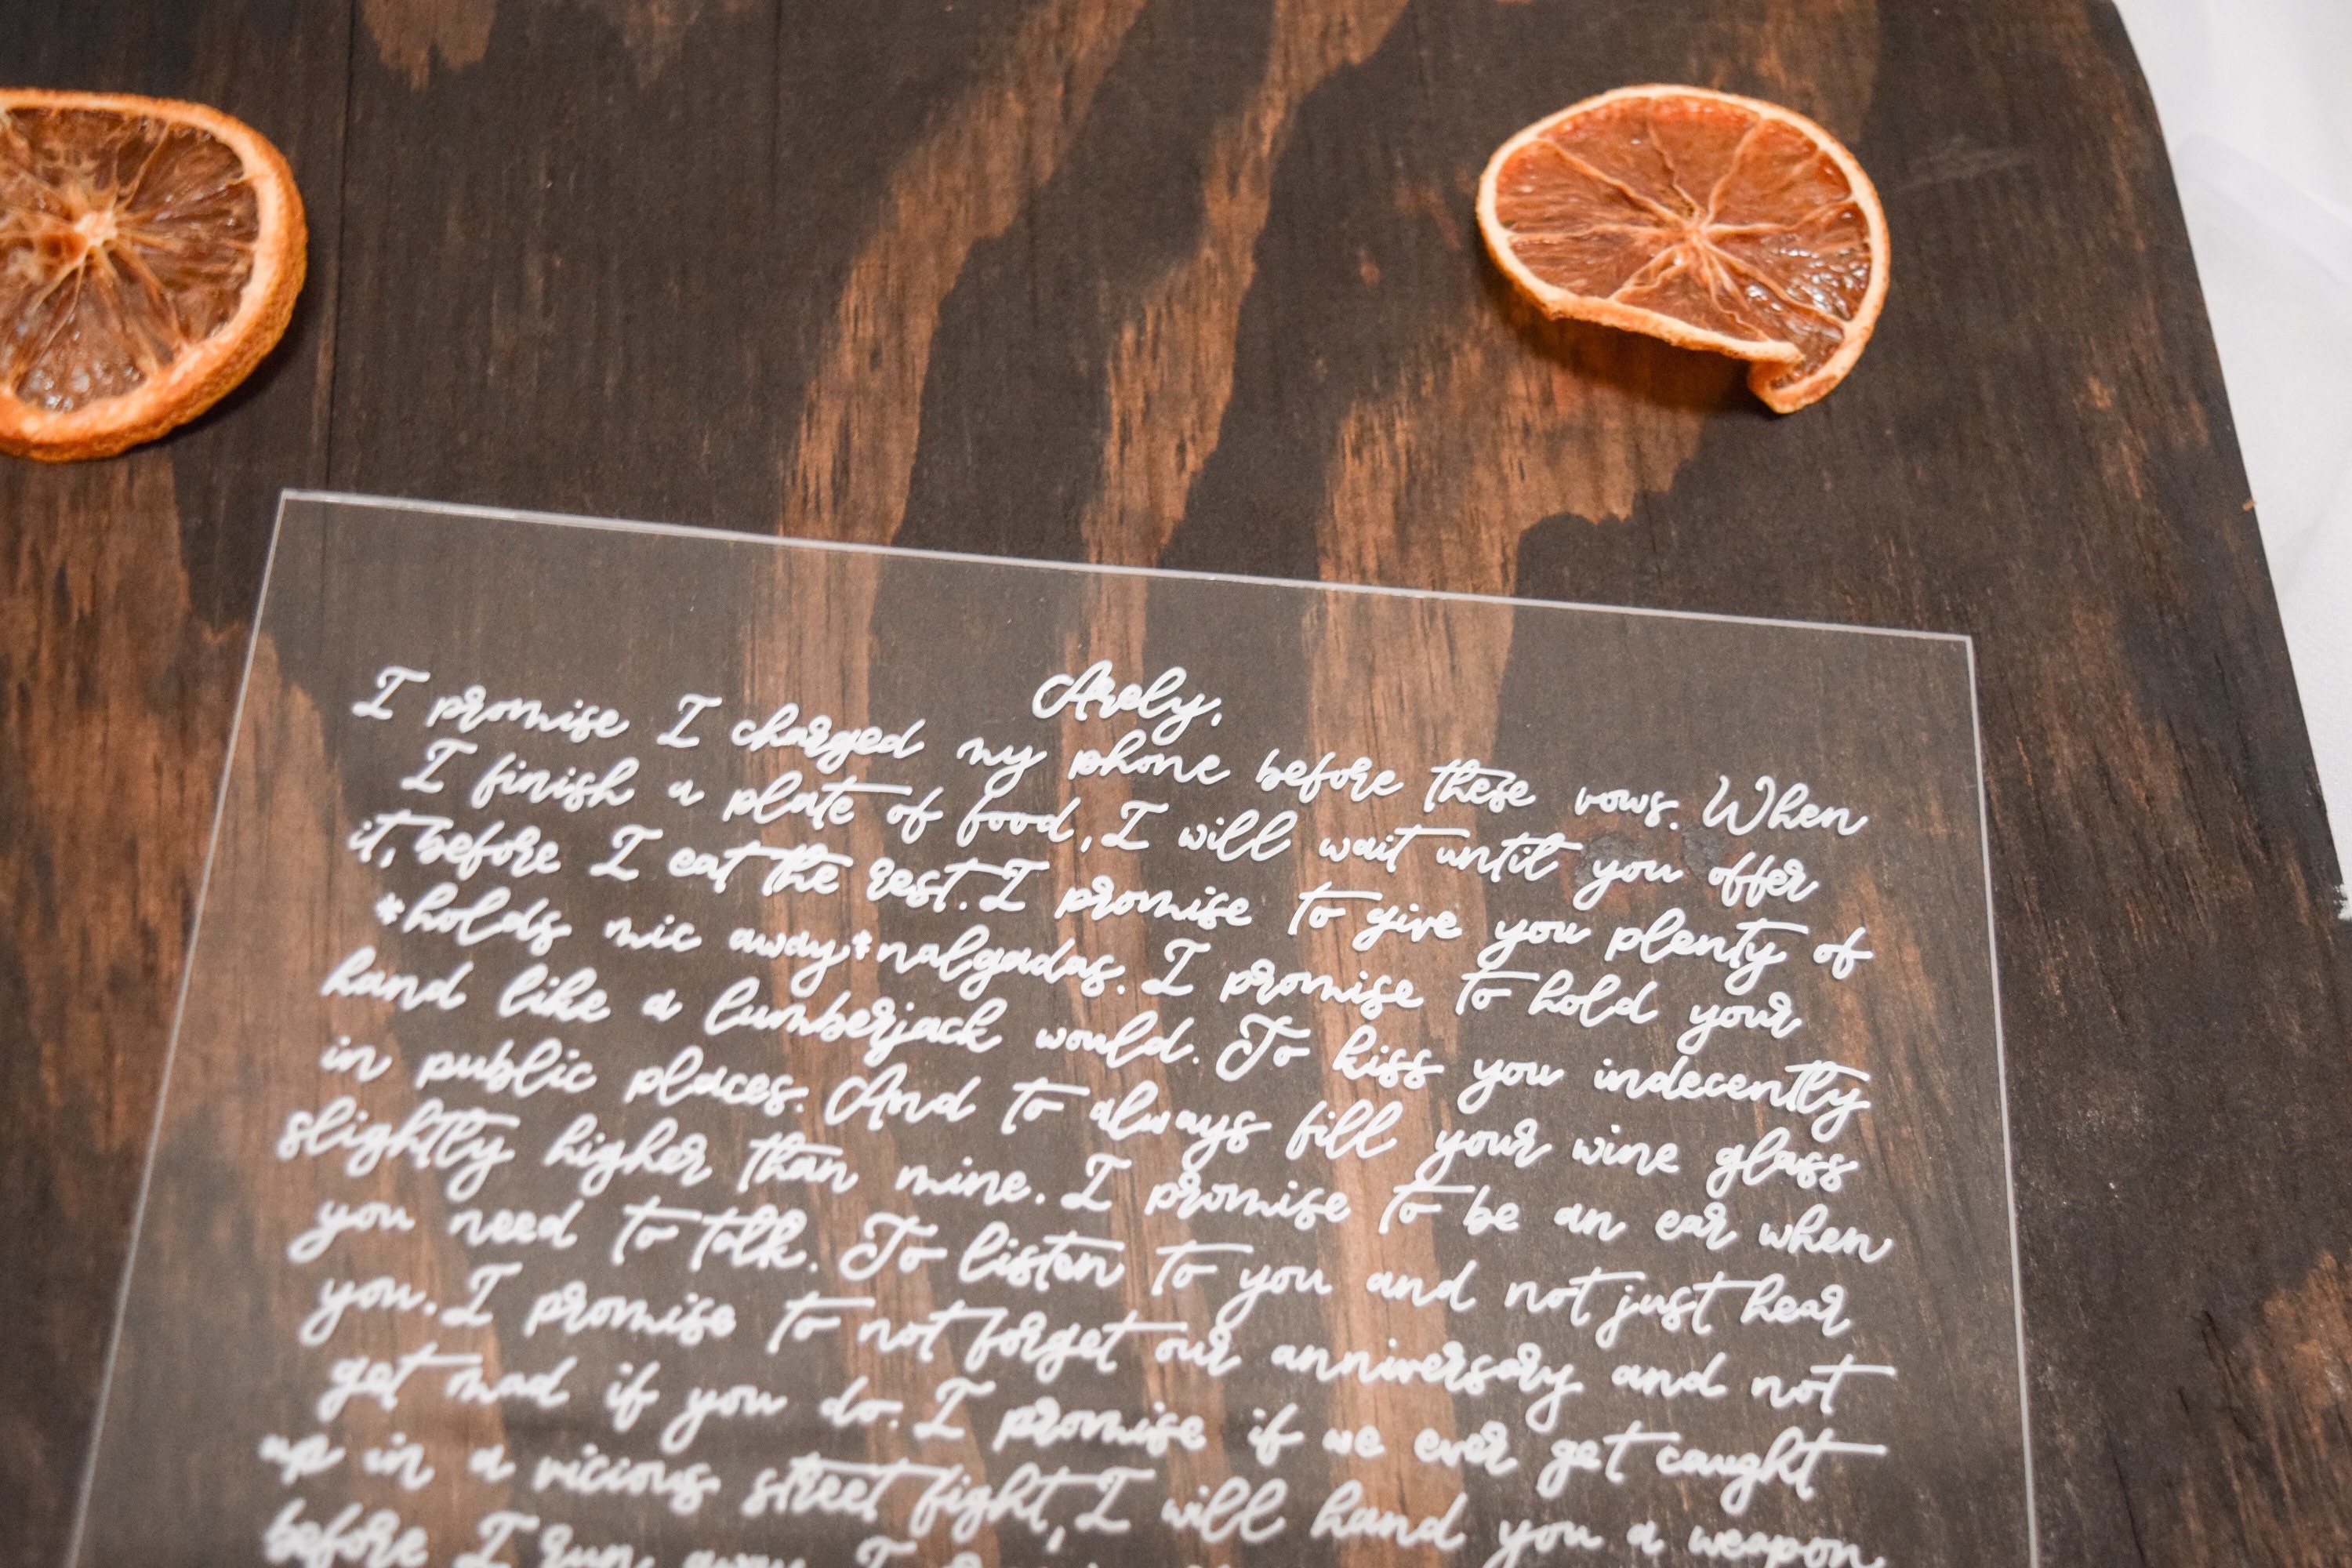 Arely,
I promise I charged my phone before these vows. When
I finish a plate of food, I will wait until you offer
it, before I eat the rest. I promise to give you plenty of
*holds mic away* nalgadas. I promise to hold your
hand like a lumberjack would. To kiss you indecently
in public places. And to always fill your wine glass
slightly higher than mine. I promise to be an ear when
you need to talk. To listen to you and not just hear
you. I promise to not forget our anniversary and not
get mad if you do. I promise if we ever get caught
up in a vicious street fight, I will hand you a weapon
before I run away. I